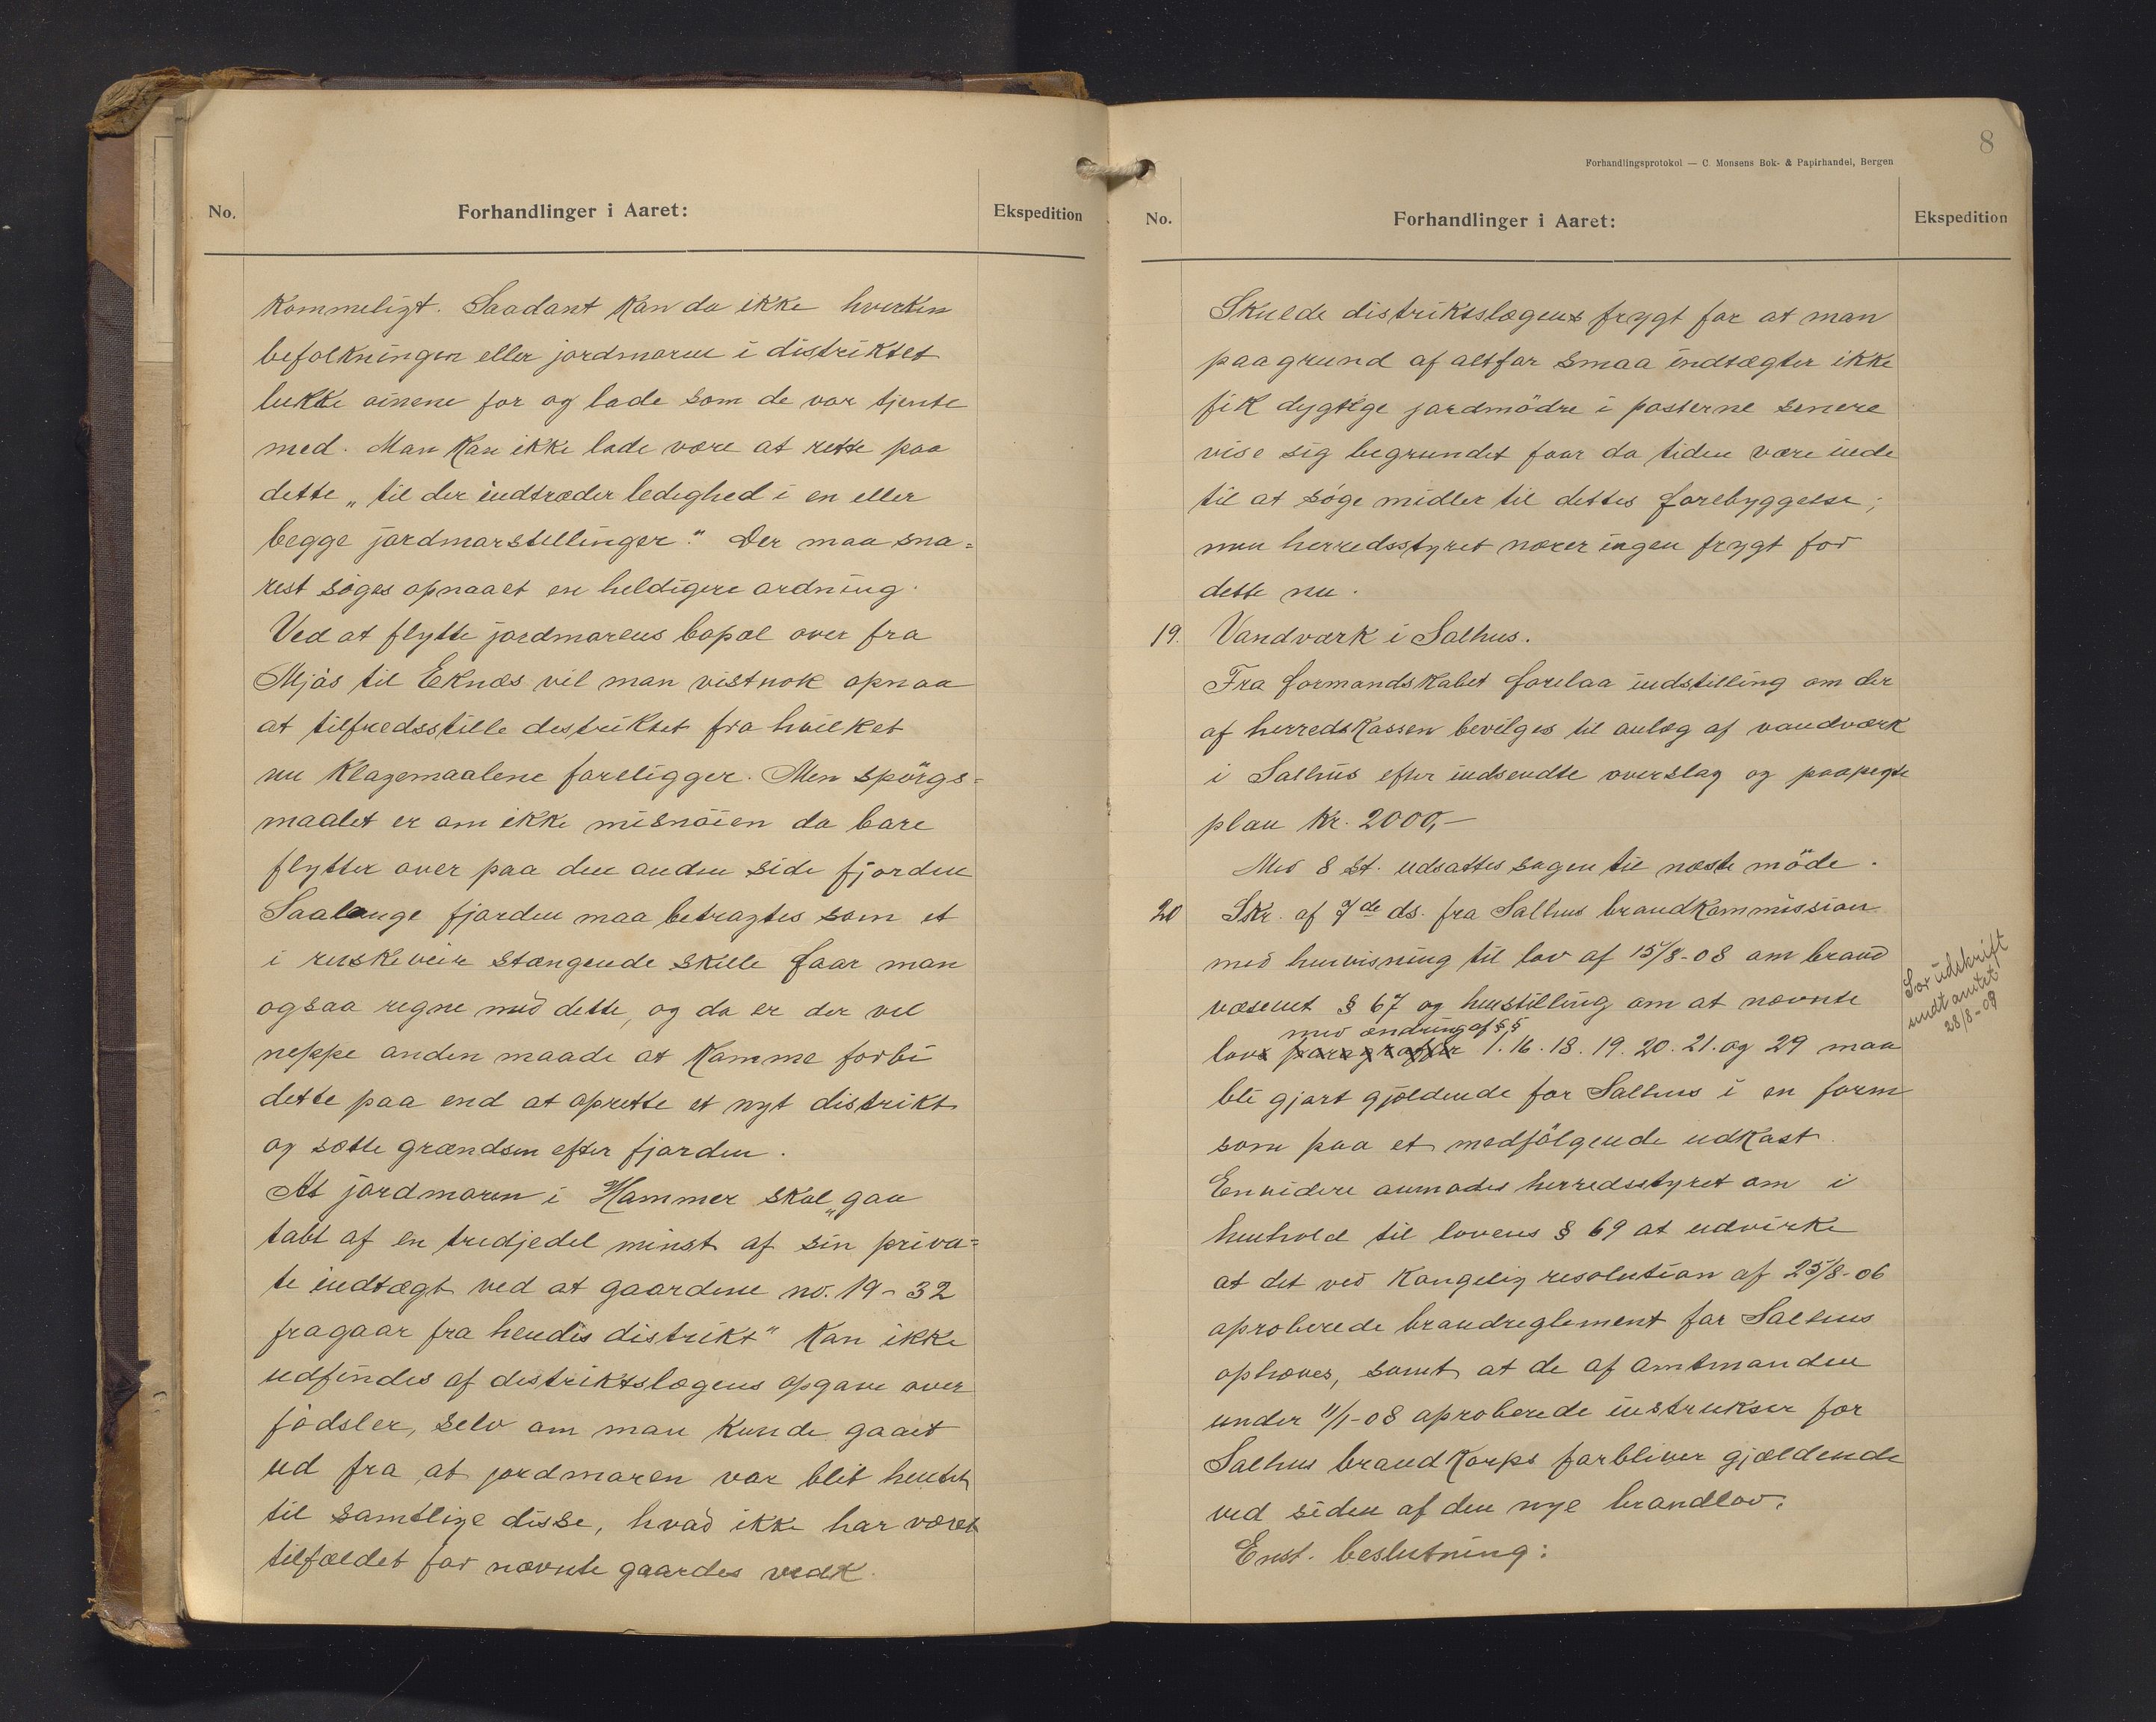 No.
Forhandlinger i Aaret:
Ekspedition
kommeligt. Saadant kan da ikke hverken
befolkningen eller jordmoren i distriktet
lukke øinene for og lade som de var tjente
med. Man kan ikke lade være at rette paa
dette „til der indtræder ledighed i en eller
begge jordmorstillinger." Der maa sna=
rest söges opnaaet en heldigere ordning.
Ved at flytte jordmorens bopæl over fra
Mjøs til Eknæs vil man vistnok opnaa
at tilfredsstille destriktet fra hvilket
nu klagemaalene foreligger. Men spörgs=
maalet er om ikke misnöien da bare
flytter over paa den anden side fjorden
Saalænge fjorden maa betragtes som et
i ruskeveir stængende skille faar man
ogsaa regne med dette, og da er der vel
neppe anden maade at komme forbi
dette paa end at oprette et nyt distrikt
og sætte grændsen efter fjorden.
At jordmoren i Hammer skal „gaa
tabt af en tredjedel minst af sin priva=
te indtægt ved at gaardene no. 19-32
fragaar fra hendes distrikt" kan ikke
udfindes af distriktslægens opgave over
födsler, selv om man kunde gaaet
ud fra at jordmoren var blit hentet
til samtlige disse, hvad ikke har været
tilfældet for nævnte gaardes vedk.
8
Forhandlingsprotokol — C. Monsens Bok- & Papirhandel, Bergen
No.
Forhandlinger i Aaret:
Ekspedition
Skulde distriktslægens frygt for at man
paa grund af altfor smaa indtægter ikke
fik dygtige jordmödre i posterne senere
vise sig begrundet faar da tiden være inde
til at söge midler til dettes forebyggelse;
men herredsstyret nærer ingen frygt for
dette nu.
19. Vandværk i Salhus.
Fra formandskabet forelaa indstilling om der
af herredskassen bevilges til anlæg af vandværk
i Salhus efter indsendte overslag og paapegte
plan Kr. 2000,—
Med 8 st. udsattes sagen til næste möde.
20 Skr. af 7de ds. fra Salhus brandkommission
med henvisning til lov af 15/8-08 om brand
væsenet § 67 og henstilling om at nævnte
med ændring af §§
lovs paragraffer 1. 16. 18. 19. 20. 21. og 29 maa
bli gjort gjældende for Salhus i en form
som paa et medfölgende udkast.
Envidere anmodes herredsstyret om i
henhold til lovens § 69 at udvirke
at det ved kongelig resolution af 25/8-06
aproberede brandreglement for Salhus
ophæves, samt at de af amtmanden
under 11/1-08 aproberede instrukser for
Salhus brandkorps forbliver gjældende
ved siden af den nye brandlov.
Enst. beslutning:
Sær udskrift
sendt amtet
28/8-09